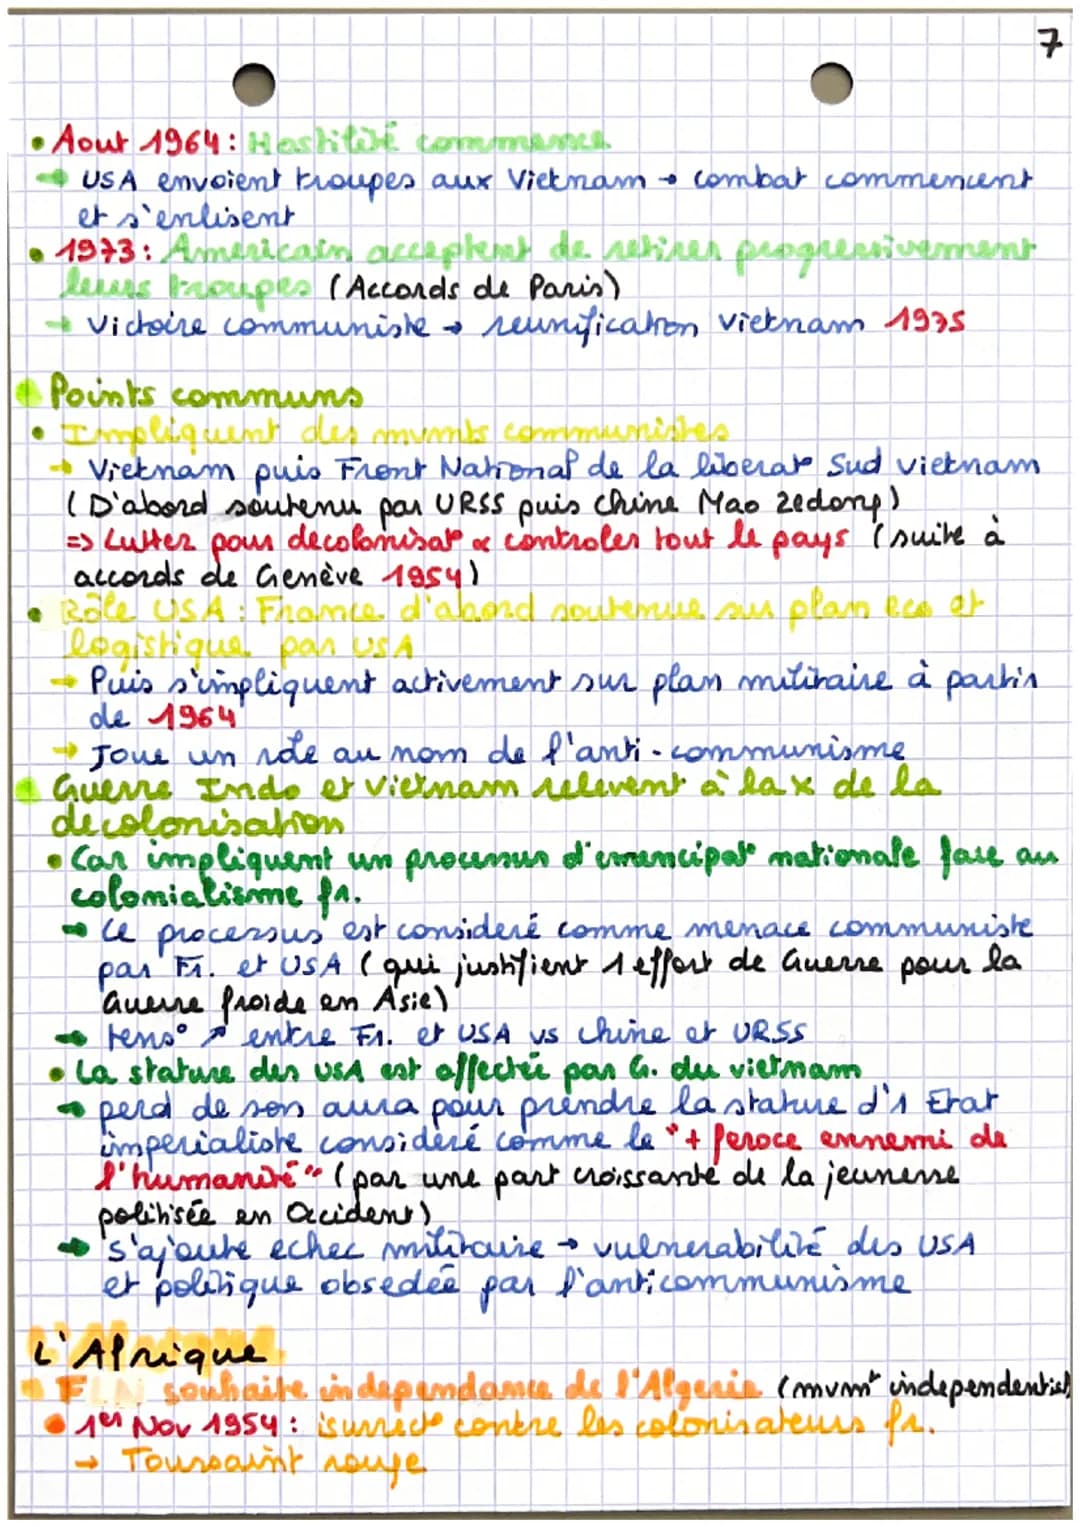 7
• Aout 1964 : Hostilité commence
→ USA envoient troupes aux Vietnam → combat commencent
et s'enlisent
• 1973 : Americain acceptent de retirer progressivement
leurs troupes (Accords de Paris)
→ Victoire communiste → reunification Vietnam 1975
Points communs
• Impliquent des mvmts communistes
→ Vietnam puis Front National de la liberat° Sud vietnam
( D'abord soutenu par URSS puis Chine Mao Zedong)
=> Lutter pour decolonisat° & controler tout le pays (suite à
accords de Genève 1954)
• Rôle USA : France d'abord soutenue sur plan eco et
logistique par USA
→ Puis s'impliquent activement sur plan militaire à partir
de 1964
→ Joue un role au nom de l'anti-communisme
Guerre Indo et Vietnam relevent à la x de la
decolonisation
• Car impliquent un processus d'emancipat° nationale face au
colonialisme fr.
→ Ce processus est consideré comme menace communiste
par Fr. et USA ( qui justifient 1 effort de Guerre pour la
Guerre froide en Asie)
→ tens° ↗ entre Fr. et USA vs Chine et URSS
• La stature des USA est affectée par G. du vietnam
→ perd de son aura pour prendre la stature d'1 Etat
imperialiste consideré comme le "+ feroce ennemi de
l'humanité" (par une part croissante de la jeunesse
politisée en Occident)
→ s'ajoute echec militaire → vulnerabilité des USA
et politique obsedée par l'anticommunisme
L'Afrique
FLN souhaite independance de l'Algerie (mvmt independentist)
• 1er Nov 1954 : isurrect° contre les colonisateurs fr.
→ Toussaint rouge